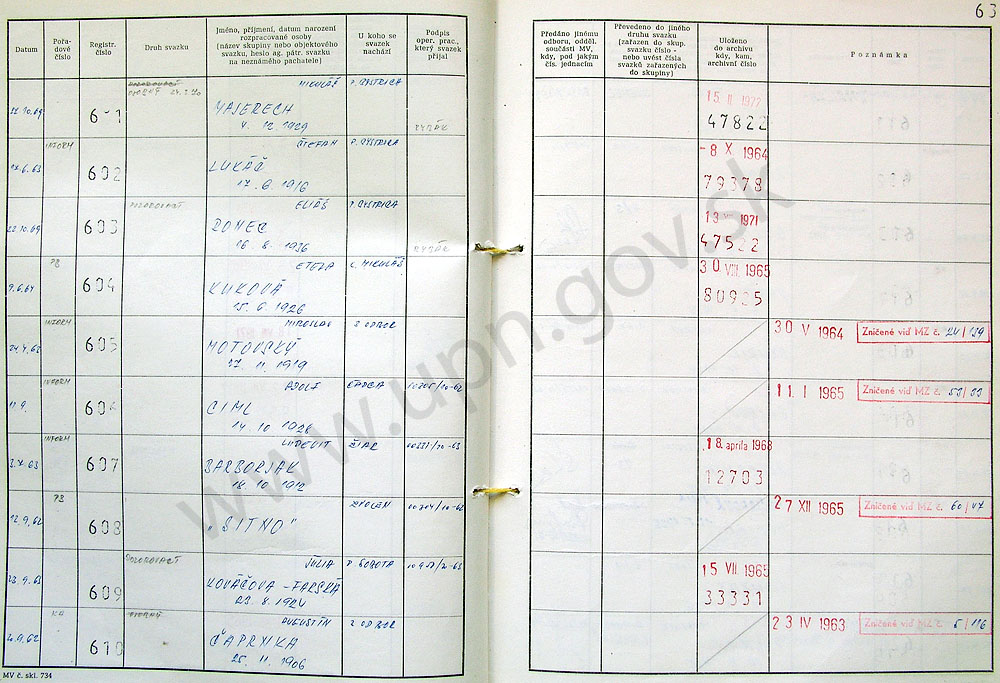 63
Datum
Pořa-
dové
číslo
Registr.
číslo
Druh svazku
Jméno, příjmení, datum narození
rozpracované osoby
(název skupiny nebo objektového
svazku, heslo ag. pátr. svazku
na neznámého pachatele)
U koho se
svazek
nachází
Podpis
oper. prac.,
který svazek
přijal
Předáno jinému
odboru, odděl.
součásti MV,
kdy, pod jakým
čís. jednacím
Převedeno do jiného
druhu svazku
(zařazen do skup.
svazku číslo -
nebo uvést čísla
svazků zařazených
do skupiny)
Uloženo
do archivu
kdy, kam,
archivní číslo
Poznámka
22.10.69 601 MIKULÁŠ B. BYSTRICA
MAJERECH
4. 12. 1929 RYBÁR
15. II 1972
47822
INFORM
17.6.63 602 ŠTEFAN B. BYSTRICA
LUKÁČ
17. 6. 1916
-8 X 1964
79378
POZOROVACÍ
22.10.69 603 ELIÁŠ B. BYSTRICA
16. 8. 1936 RYBÁR
1971
47522
PB
9.6.64 604 ETELA L. MIKULÁŠ
KUKOVÁ
15. 6. 1926
30 VIII. 1965
80925
INFORM
24.4.62 605 MIROSLAV 2. ODBOR
MOTOVSKÝ
17. 11. 1919
30 V 1964 Zničené viď MZ č. 24/129
INFORM
606 ADOLF
CIML
14. 10. 1926
11. I 1965 Zničené viď MZ č. 53/33
INFORM
607 ĽUDEVIT ŽIAR
BARBORJAK
18. 10. 1912
18. apríla 1968
12703
PB
12.9.62 608 ZVOLEN
„SITNO"
27 XII 1965 Zničené viď MZ č. 60/47
POZOROVACÍ
609 JÚLIA R. SOBOTA
KOVÁČOVA - FARSKÁ
23. 8. 1924
15 VII. 1965
33331
610 AUGUSTÍN 2. ODBOR
ČAPRNKA
25. 11. 1906
23 IV 1963 Zničené viď MZ č. 5/116
MV č. skl. 734
www.upn.gov.sk